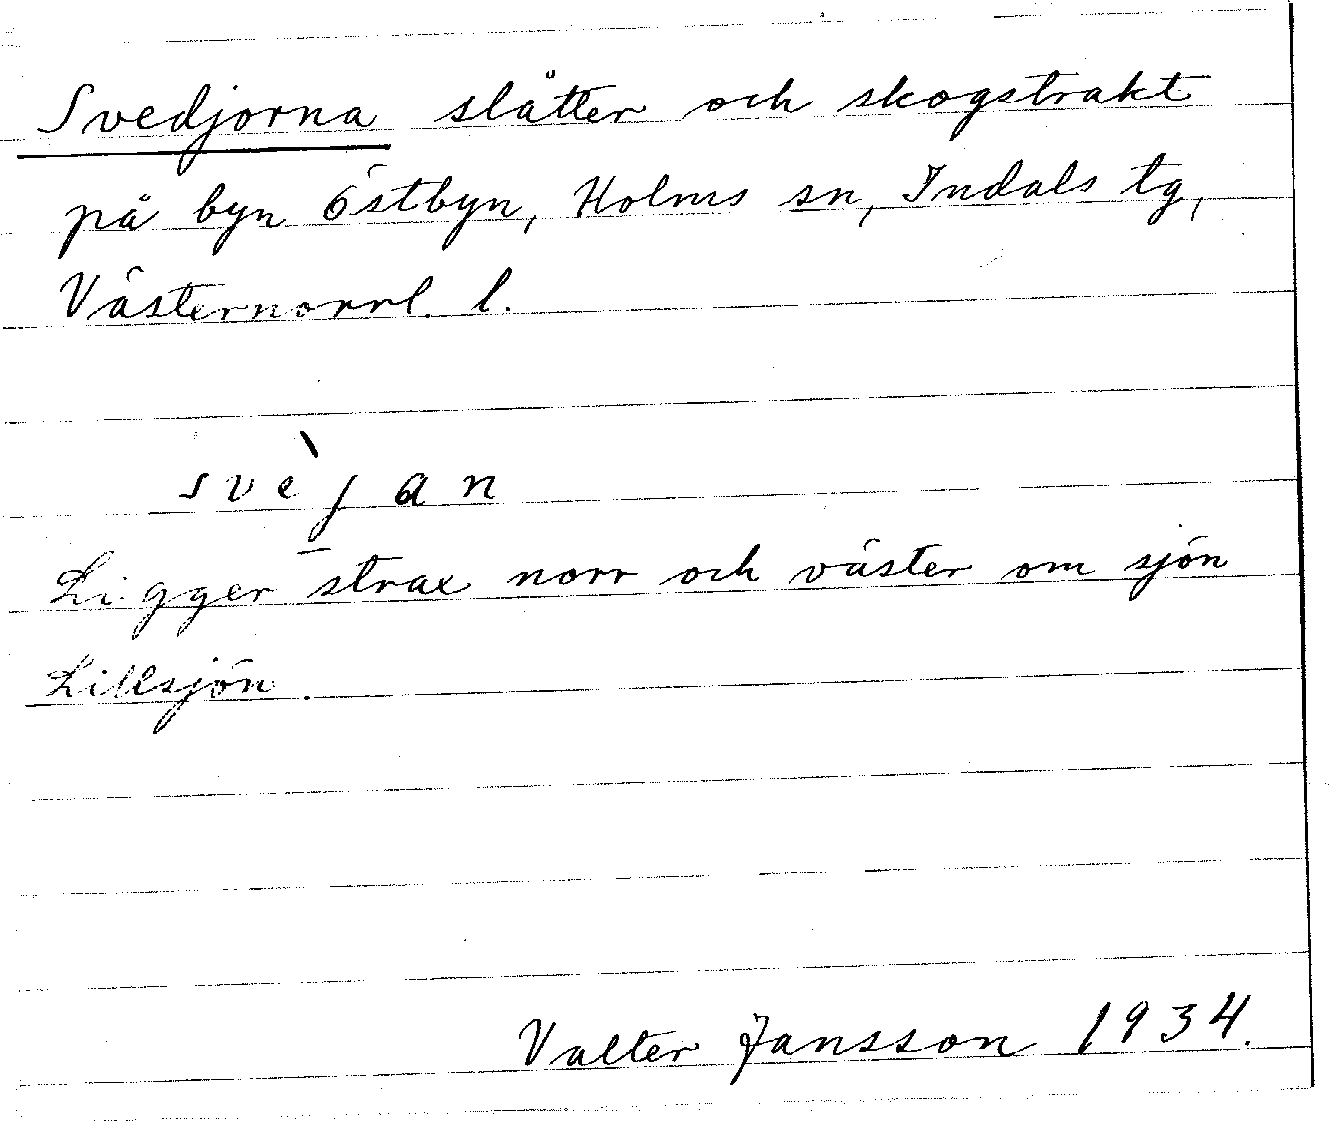 Svedjorna slåtter och skogstrakt
på byn Östbyn, Holms sn, Indals tg,
Västernorrl. l.
sve`jan
Ligger strax norr och väster om sjön
Lillsjön.
Valter Jansson 1934.